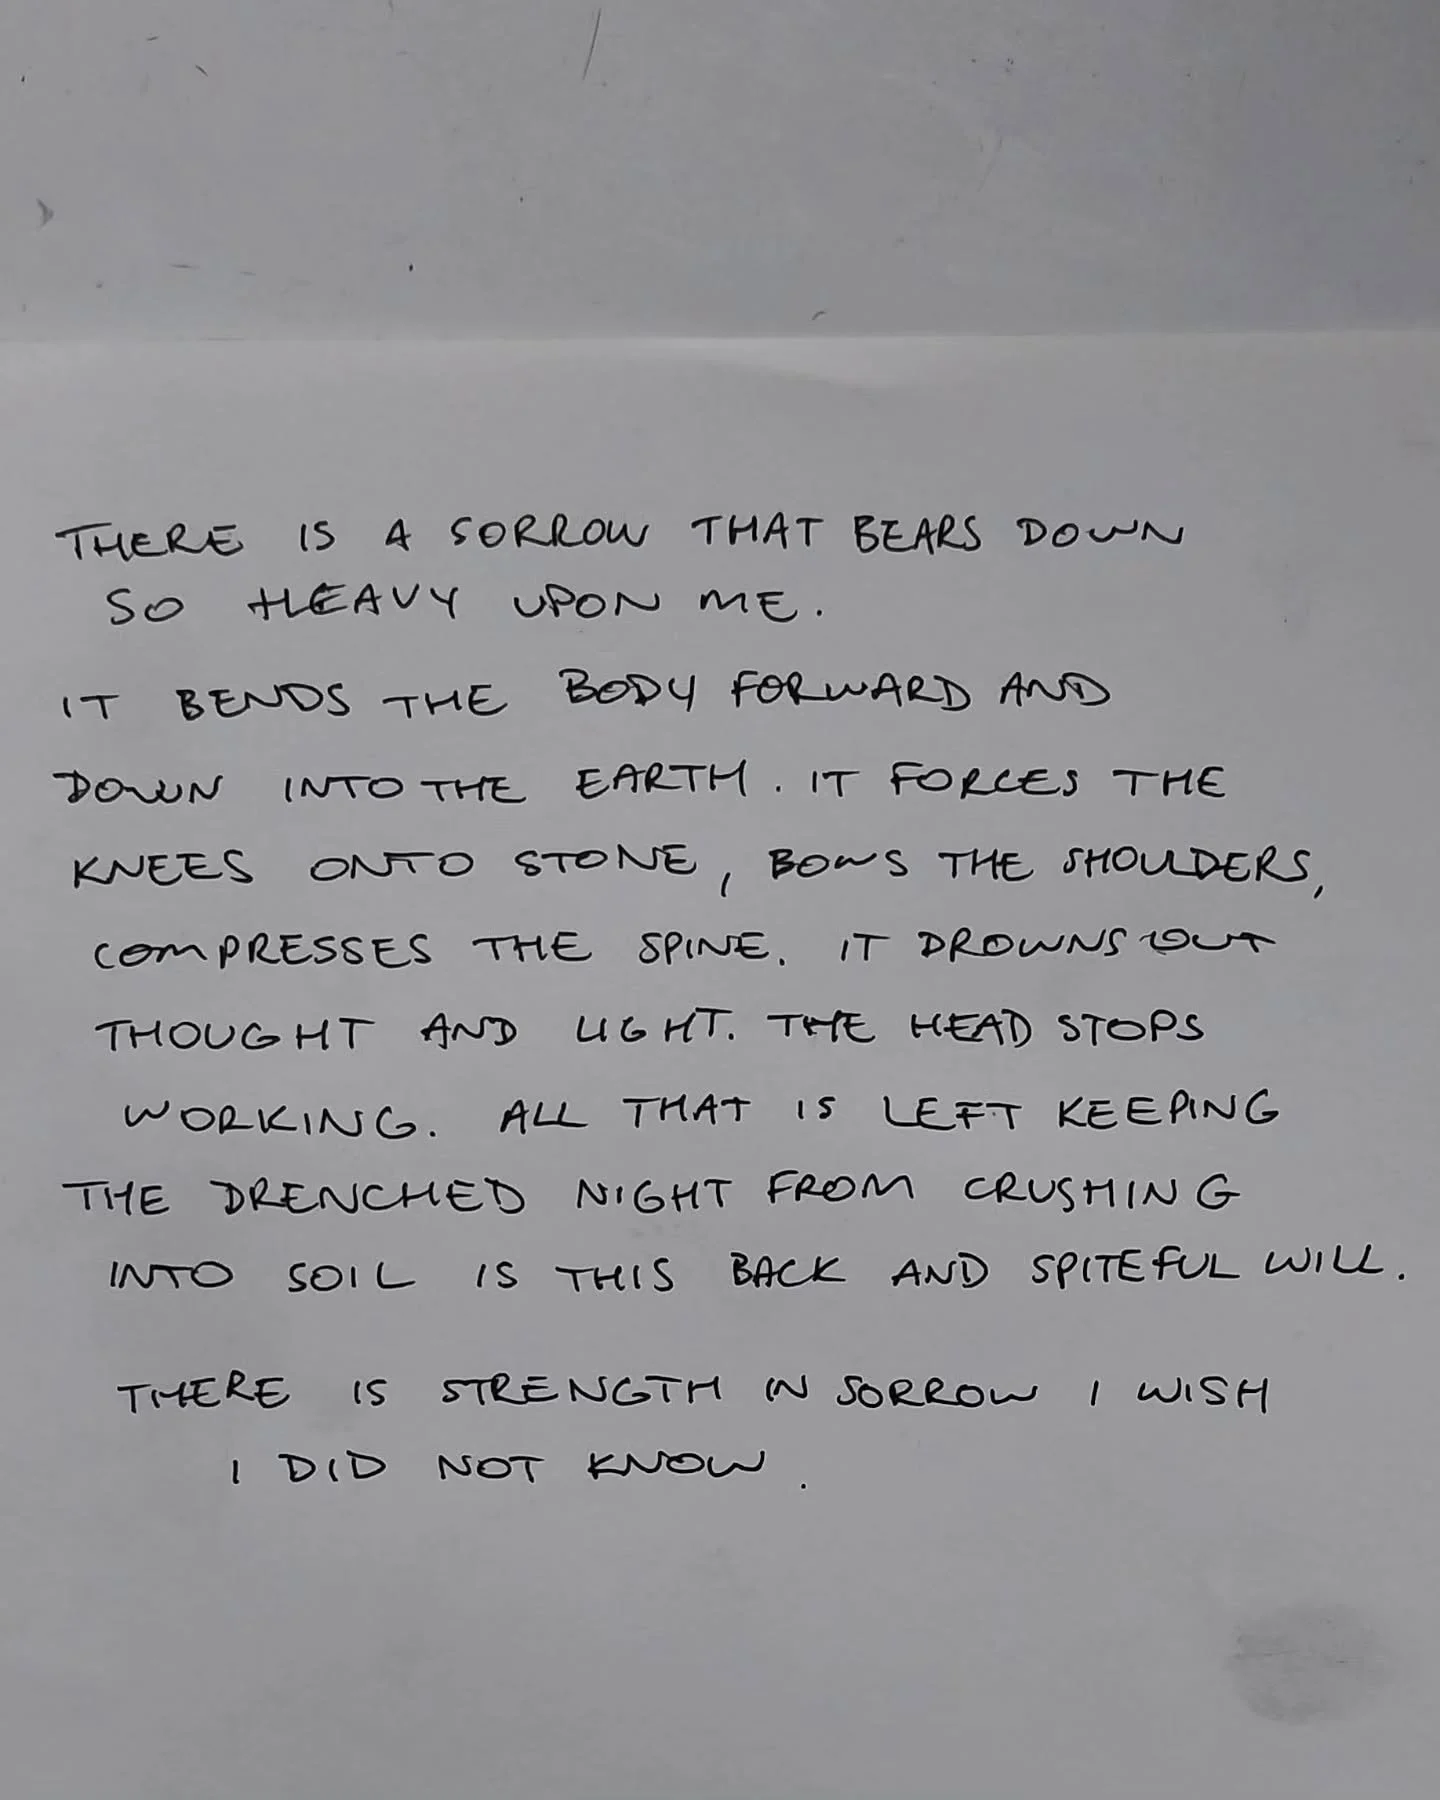 THERE IS A SORROW THAT BEARS DOWN
SO HEAVY UPON ME.
IT BENDS THE BODY FORWARD AND
DOWN INTO THE EARTH. IT FORCES THE
KNEES ONTO STONE, BOWS THE SHOULDERS,
COMPRESSES THE SPINE. IT DROWNS OUT
THOUGHT AND LIGHT. THE HEAD STOPS
WORKING. ALL THAT IS LEFT KEEPING
THE DRENCHED NIGHT FROM CRUSHING
INTO SOIL IS THIS BACK AND SPITEFUL WILL.
THERE IS STRENGTH IN SORROW I WISH
I DID NOT KNOW.